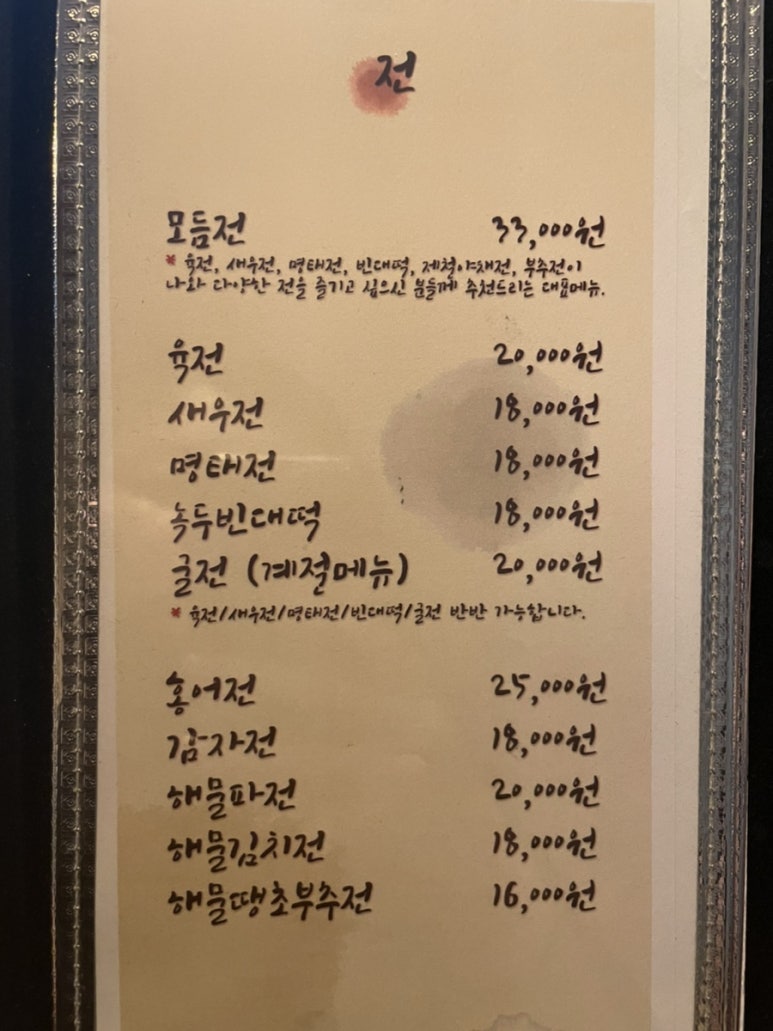 전
모듬전 33,000원
* 육전, 새우전, 명태전, 빈대떡, 제철야채전, 부추전이
나와 다양한 전을 즐기고 싶으신 분들께 추천드리는 대표메뉴.
육전 20,000원
새우전 18,000원
명태전 18,000원
녹두빈대떡 18,000원
굴전 (계절메뉴) 20,000원
* 육전/새우전/명태전/빈대떡/굴전 반반 가능합니다.
홍어전 25,000원
감자전 18,000원
해물파전 20,000원
해물김치전 18,000원
해물땡초부추전 16,000원